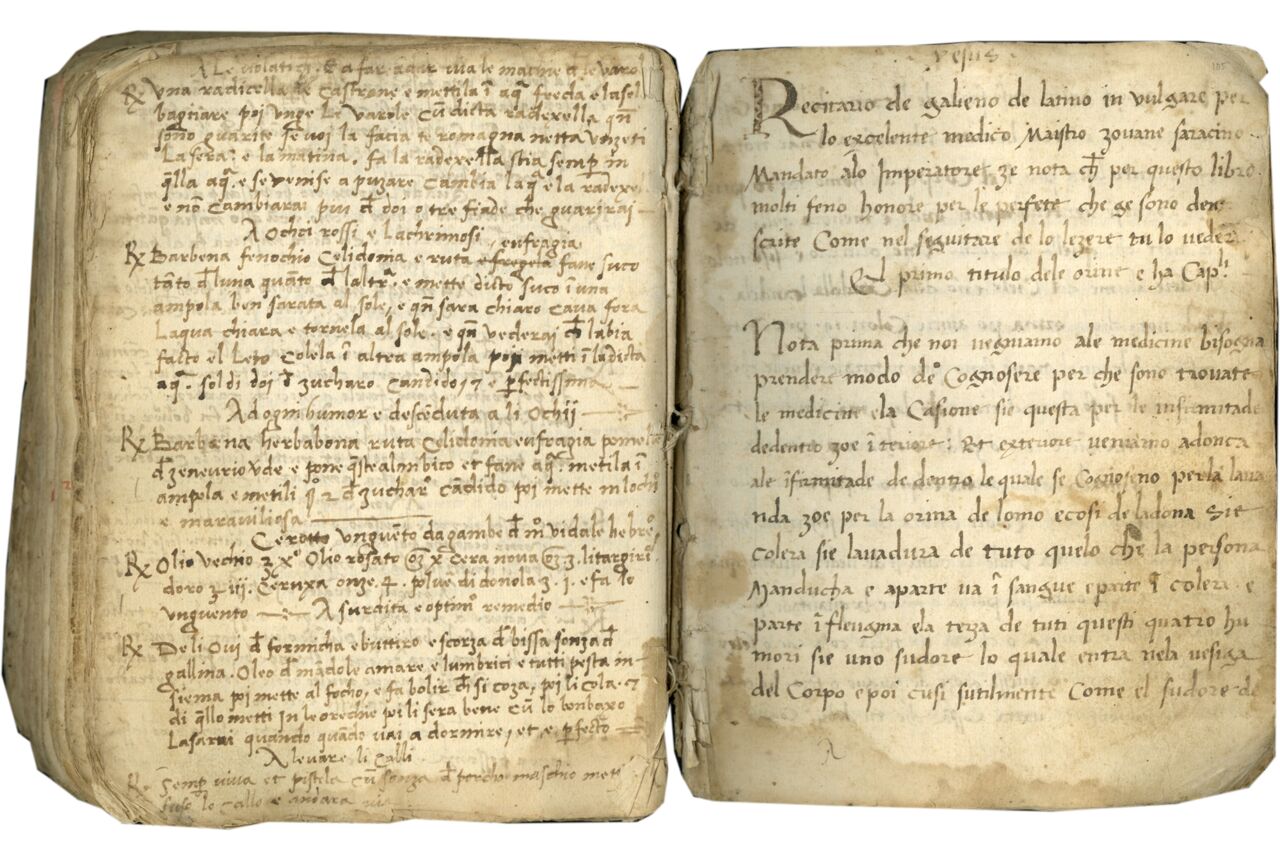 A Le volatiche E a far agar via le macine de le varo
℞ una radicella de castrone e mettila ī aqͣ frecda e lasol
bagnare poi unge le varole cū dicta radexella qn̄
sono guarite se voi la facia te romagna netta unzeti
La sera e la matina. fa la radexella stia semp̄ in
q̄lla aqͣ. e se venise a puzare cambia laqͣ e la radexe
e nō cambiarai piu đ doi o tre fiade che guarirai
A Ochci rossi e Lachrimosi
eufragia
℞ Barbena fenochio Celidonia e ruta fane suco
tāto đ luna quāto đ laltrͣ. e mette dicto suco ī una
ampola ben sarata al sole, e qn̄ sara chiaro cava fora
Laqua chiara e tornela al sole. e qn̄ vederai cħ labia
facto el Leto Colela ī altra ampola poi metti ī la dicta
aqͣ. soldi doi đ zucharo candido, 7 e p̄fectissima
A dogni humor e descēduta a li Ochij
℞ Barbena herbabona ruta Celidonia eufragia pomelle
đ zenevrio vde e pone q̄ste almbico et fane aqͣ. metila ī
ampola e metili 2 đ zucharͦ cādido poi mette in lochi
e maraviliosa
Cerotto unguēto da gambe đ mͦ vidale hebreͦ
℞ Olio vechio ℥ xͦ Olio rosato x Cera nova 3. litargirͥ
doro ℥ iij. Ceruxa onze. 4. polve di donola 3. i. e fa lo
unguento A surdita e optimͦ remedio
℞ De li Ovi đ formicha e buttiro e scorza đ bissa sonza đ
gallina. Oleo đ mādole amare e lumbrici e tutti pesta in
siema poi mette al focho, e fa bolir cħ si coza, poi li cola. 7
di q̄llo metti in le orechie poi li sera bene cū lo bonbaxo
Lasarai quando quādo vai a dormire, et e p̄fecto
A levare li Calli
℞ Semp̄ viva et pistela cū sonza đ porcho maschio meti
suso lo callo e andara via
Yesus
105
Recitario de galieno de latino in vulgare per
lo excelente medico Maistro zovane saracino
Mandato alo Imperatore ze nota cħ per questo libro
molti seno honore per le perfete che ge sono des
scrite Come nel seguitare de lo lezere tu lo veder
El primo titulo dele orine e ha Capˡⁱ
Nota prima che noi vegniamo ale medicine bisogna
prendere modo de Cognosere per che sono trovate
le medicine ela Casione sie questa per le infirmitade
dedentro zoe īteriore: Et exteriore veniamo adonca
ale īfirmitade de dentro le quale se Cognoseno per la lava
nda zoe per la orina de lomo ecosi de ladona Sie
Colera sie lavadura de tuto quelo che la persona
Manducha e aparte va ī sangue eparte ī colera e
parte ī fleugma ela terza de tuti questi quatro hu
mori sie uno sudore lo quale entra nela vesiga
del Corpo e poi cusi sutilmente Come el sudore de
A